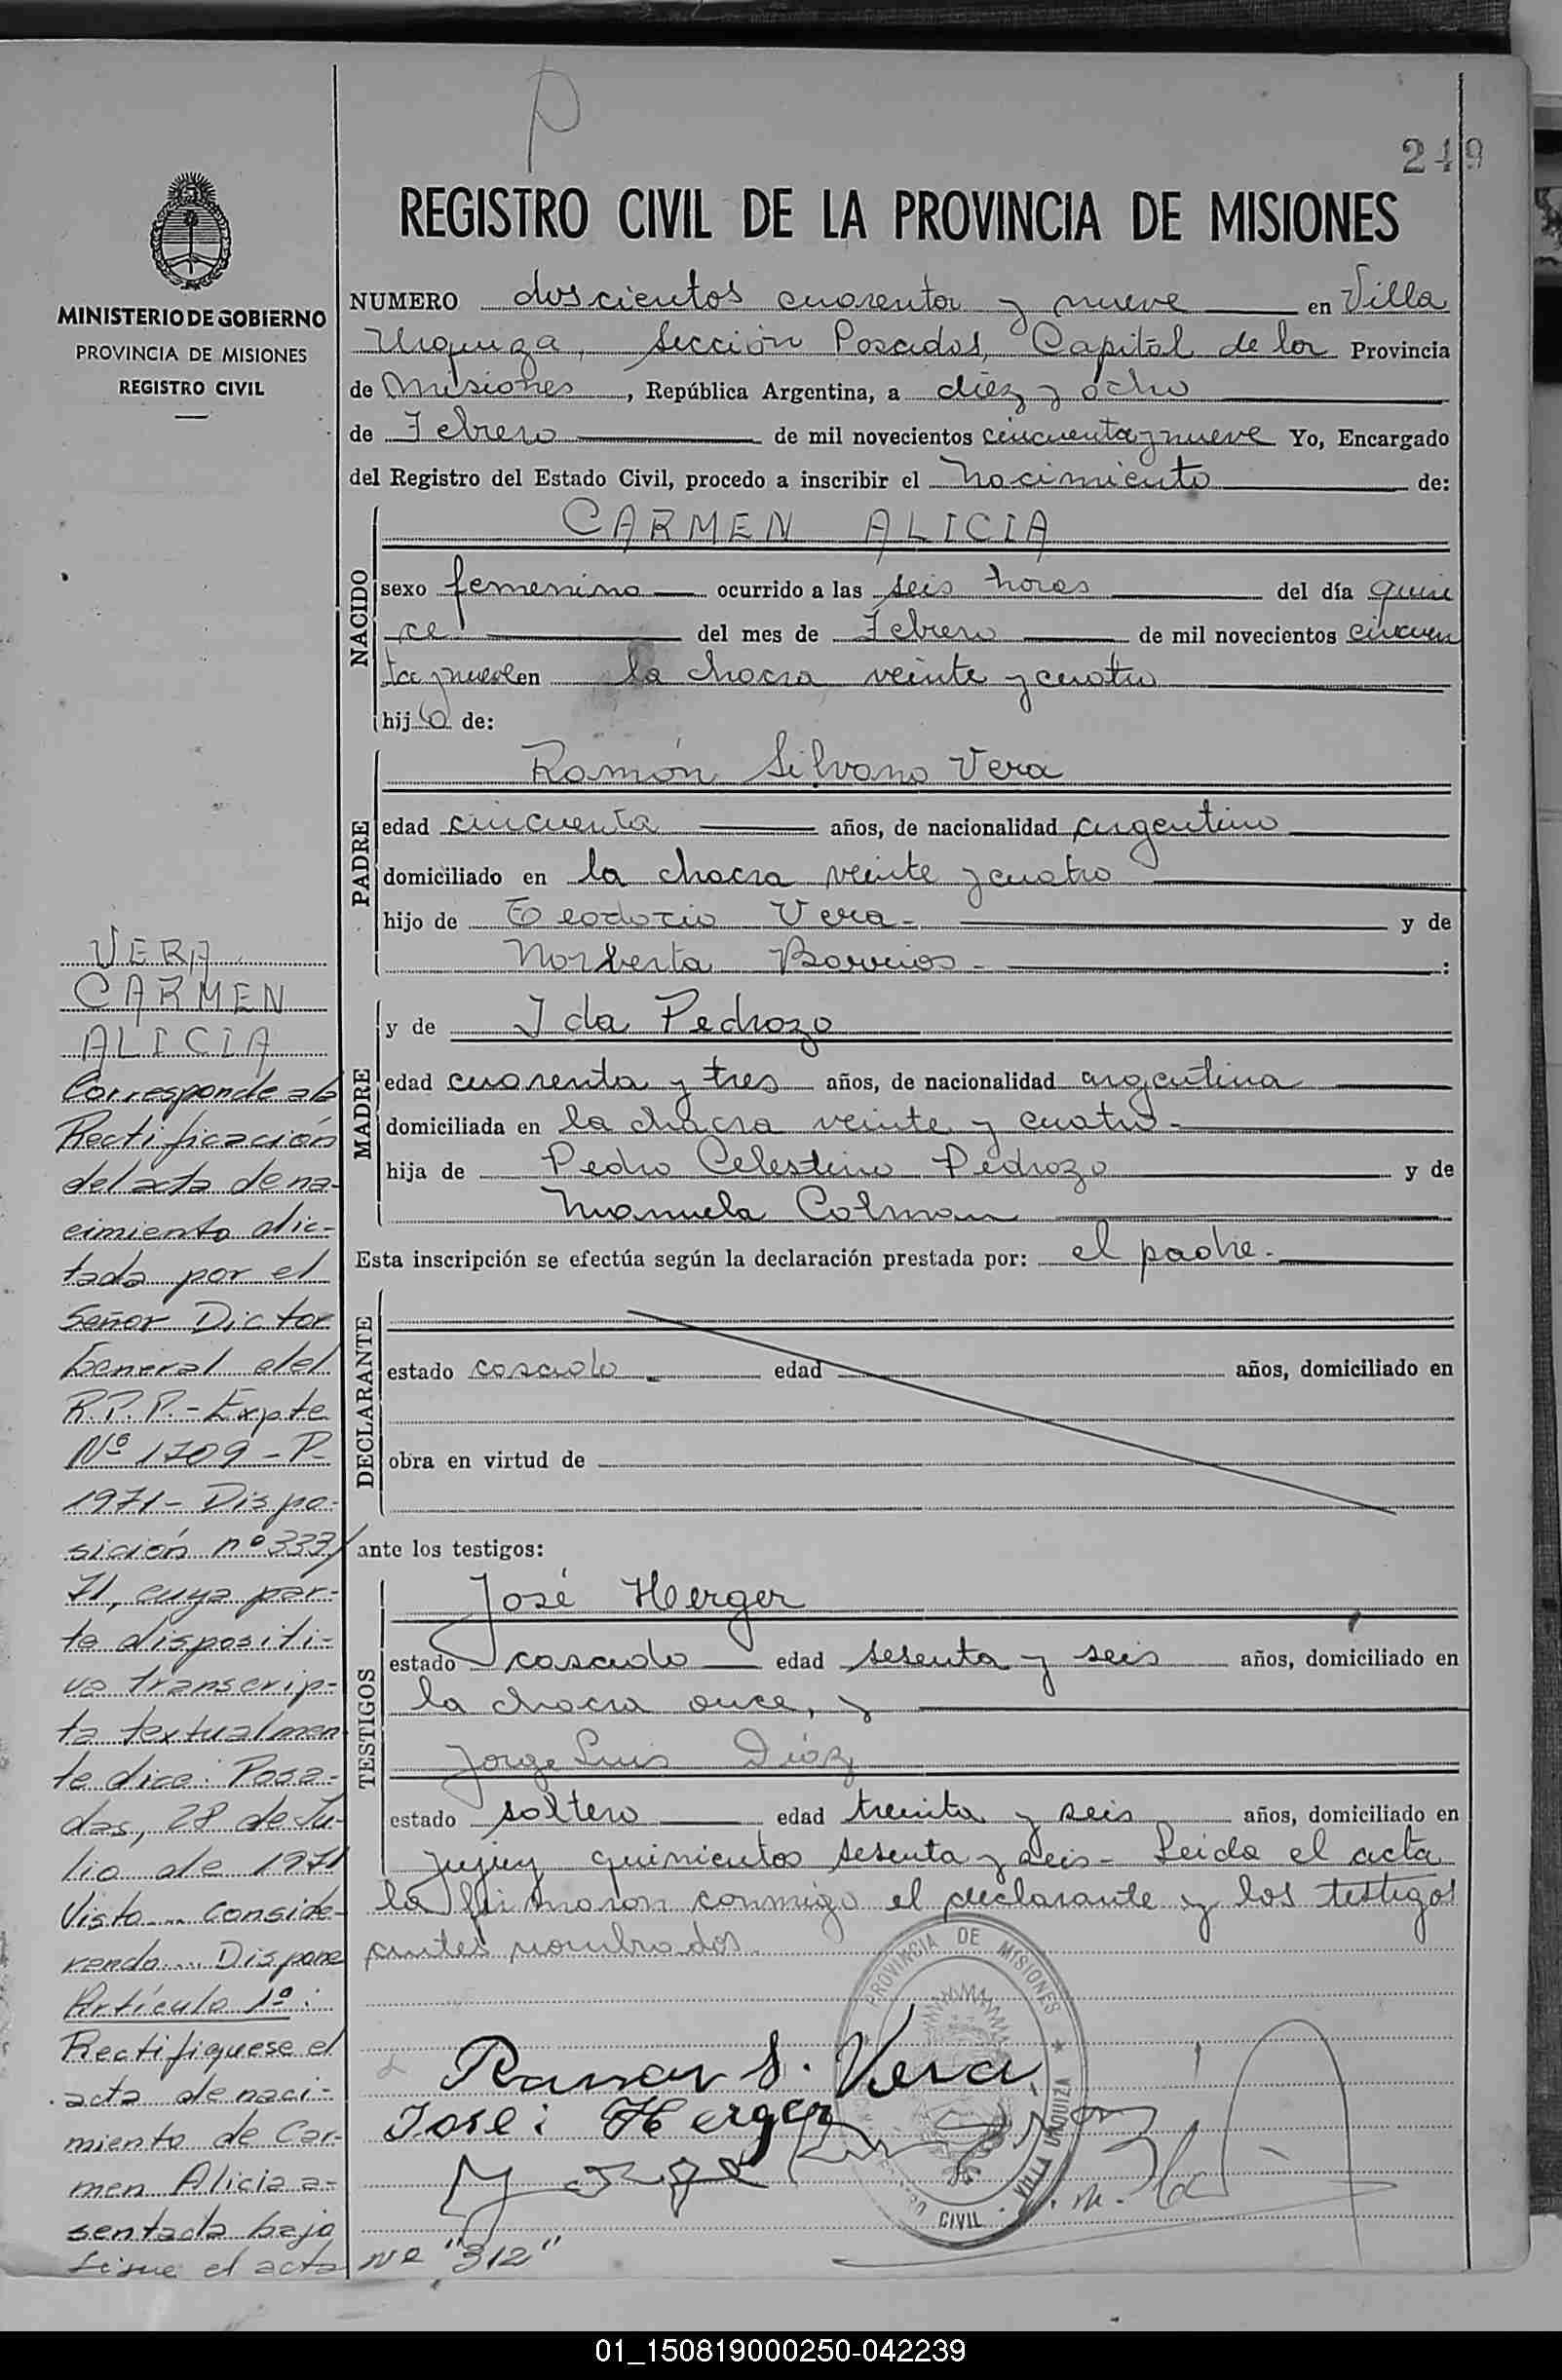 P
249
REGISTRO CIVIL DE LA PROVINCIA DE MISIONES
MINISTERIO DE GOBIERNO
PROVINCIA DE MISIONES
REGISTRO CIVIL
NUMERO doscientos cuarenta y nueve en Villa
Urquiza, Sección Posadas, Capital de la Provincia
de Misiones, República Argentina, a diez y ocho
de Febrero de mil novecientos cincuenta y nueve Yo, Encargado
del Registro del Estado Civil, procedo a inscribir el Nacimiento de:
NACIDO
CARMEN ALICIA
sexo femenino ocurrido a las seis horas del día quin
ce del mes de Febrero de mil novecientos cincuen
ta y nueve en la chacra veinte y cuatro
hija de:
PADRE
Ramón Silvano Vera
edad cincuenta años, de nacionalidad argentino
domiciliado en la chacra veinte y cuatro
hijo de Teodocio Vera- y de
Norberta Barrios- :
MADRE
y de Ida Pedrozo
edad cuarenta y tres años, de nacionalidad argentina
domiciliada en la chacra veinte y cuatro-
hija de Pedro Celestino Pedrozo y de
Manuela Colman
Esta inscripción se efectúa según la declaración prestada por: el padre.
DECLARANTE
estado casado edad años, domiciliado en
obra en virtud de
ante los testigos:
TESTIGOS
José Herger
estado casado edad sesenta y seis años, domiciliado en
la chacra once, y
Jorge Luis Díaz
estado soltero edad treinta y seis años, domiciliado en
Jujuy quinientos sesenta y seis- Leida el acta
la firmaron conmigo el declarante y los testigos
antes nombrados.
PROVINCIA DE MISIONES
VILLA URQUIZA
CIVIL
Ramon S. Vera
José: Herger
Jorge
VERA
CARMEN
ALICIA
Corresponde a la
Rectificación
del acta de na-
cimiento dic-
tada por el
Señor Dictor
General del
R.P.P.-Expte
Nº 1709-P-
1971- Dispo-
sición nº 333/
71, cuya par-
te dispositi-
va transcrip-
ta textualmen
te dice: Posa-
das, 28 de Ju-
lio de 1971
Visto... Conside-
rando.... Dispone
Artículo 1º:
Rectifiquese el
acta de naci-
miento de Car-
men Alicia a-
sentada bajo
Sigue el acta nº "312"
01_150819000250-042239